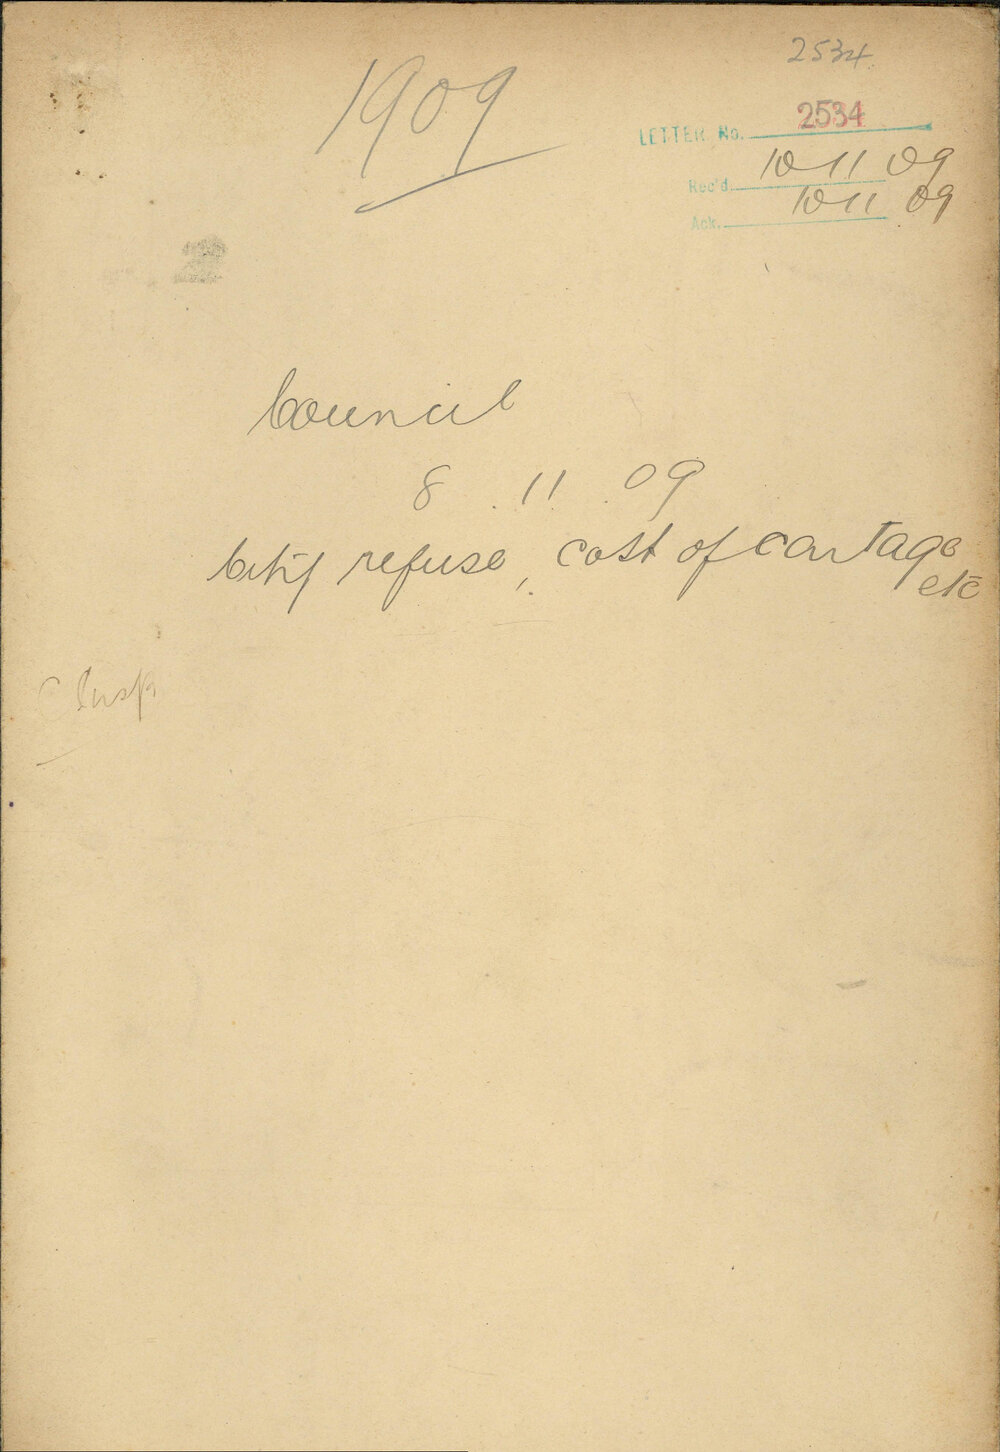 2534
1909
LETTER No. 2534
Rec'd. 10 11 09
Ack. 10 11 09
2
Council
8 . 11 . 09
City refuse, cost of cartage
etc
C Insp